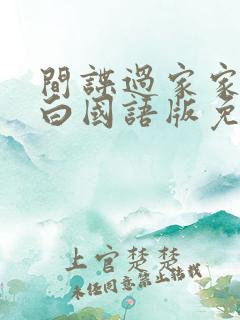 間諜過家家
白國語版免
上官楚楚
未经同意禁止转载